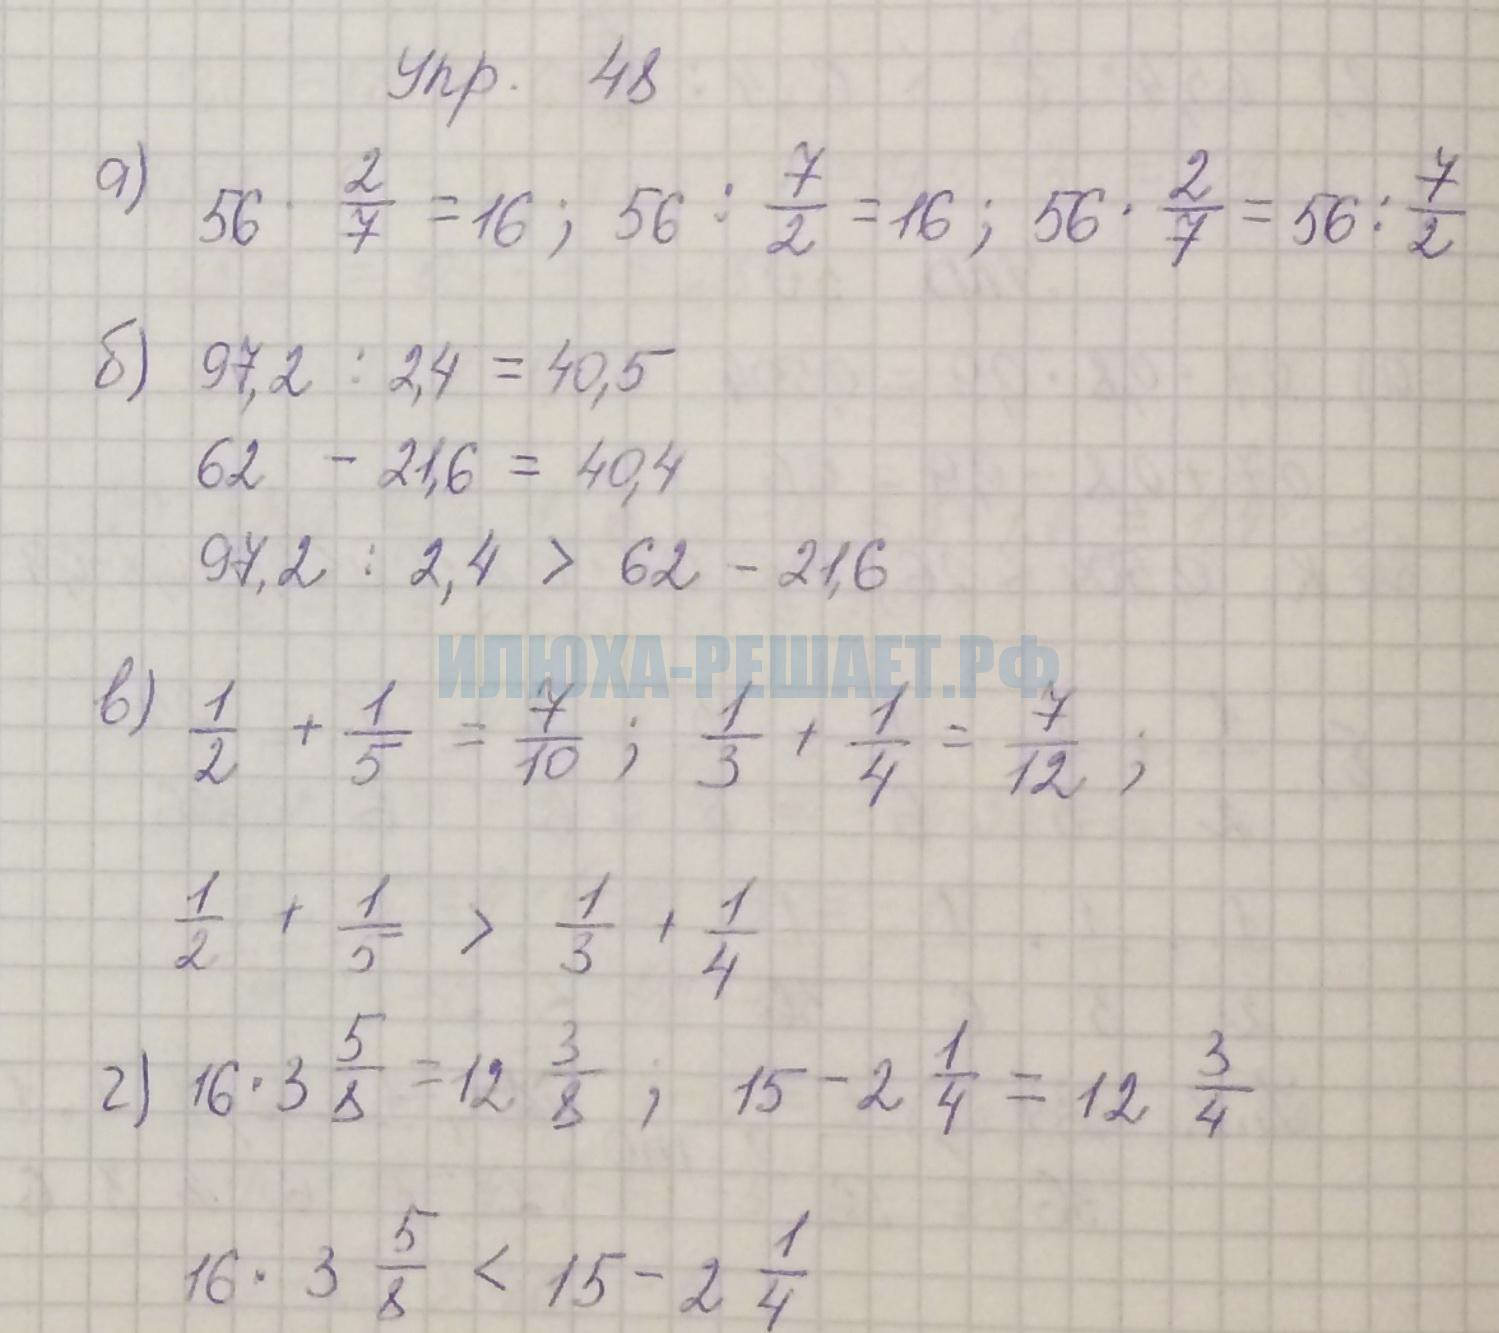 Упр. 48
а) 56 · 2/7 = 16 ; 56 : 7/2 = 16 ; 56 · 2/7 = 56 : 7/2
б) 97,2 : 2,4 = 40,5
62 - 21,6 = 40,4
97,2 : 2,4 > 62 - 21,6
ИЛЮХА-РЕШАЕТ.РФ
в) 1/2 + 1/5 = 7/10 ; 1/3 + 1/4 = 7/12 ;
1/2 + 1/5 > 1/3 + 1/4
г) 16 · 3 5/8 = 12 3/8 ; 15 - 2 1/4 = 12 3/4
16 · 3 5/8 < 15 - 2 1/4